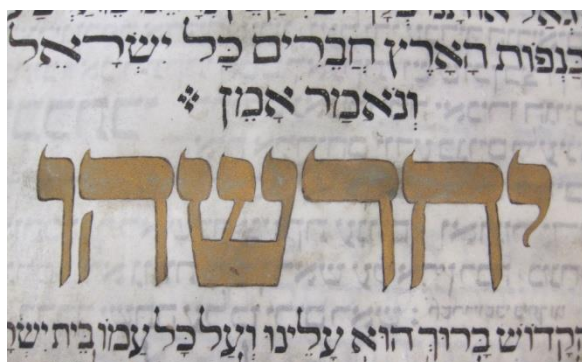 כַּנְפוֹת הָאָרֶץ חֲבֵרִים כָּל יִשְׂרָאֵל
וְנֹאמַר אָמֵן
יחדשהו
הַקָּדוֹשׁ בָּרוּךְ הוּא עָלֵינוּ וְעַל כָּל עַמּוֹ בֵּית יִשְׂר